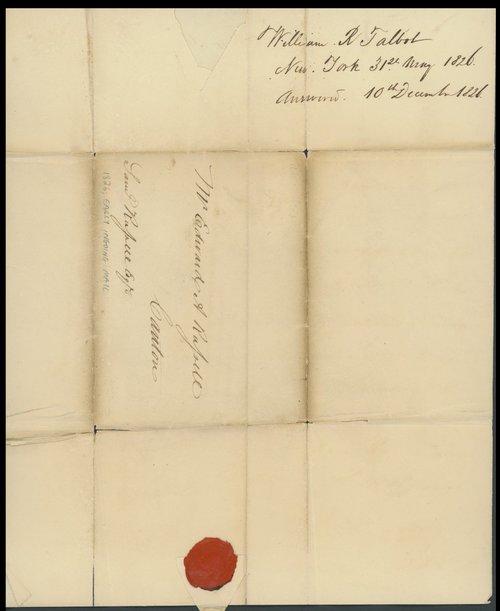 William R Talbot
New. York 31st May 1826.
Answered. 10th December 1826
Mr Edward A Russell
Canton
Saml Russell Esqr
1826, EARLY INCOMING MAIL